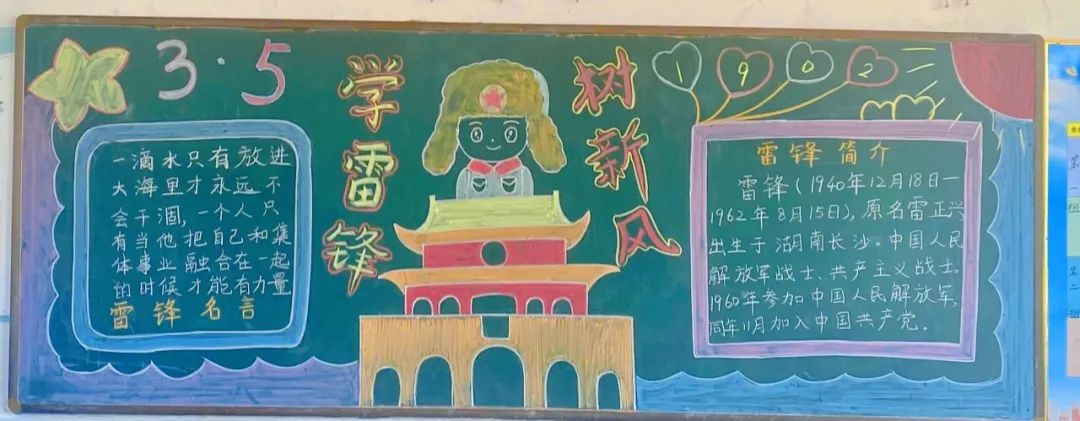 3·5
学雷锋
树新风
1902
一滴水只有放进
大海里才永远不
会干涸，一个人只
有当他把自己和集
体事业融合在一起
的时候才能有力量
雷锋名言
雷锋简介
雷锋（1940年12月18日一
1962年8月15日），原名雷正兴
出生于湖南长沙。中国人民
解放军战士、共产主义战士。
1960年参加中国人民解放军，
同年11月加入中国共产党。